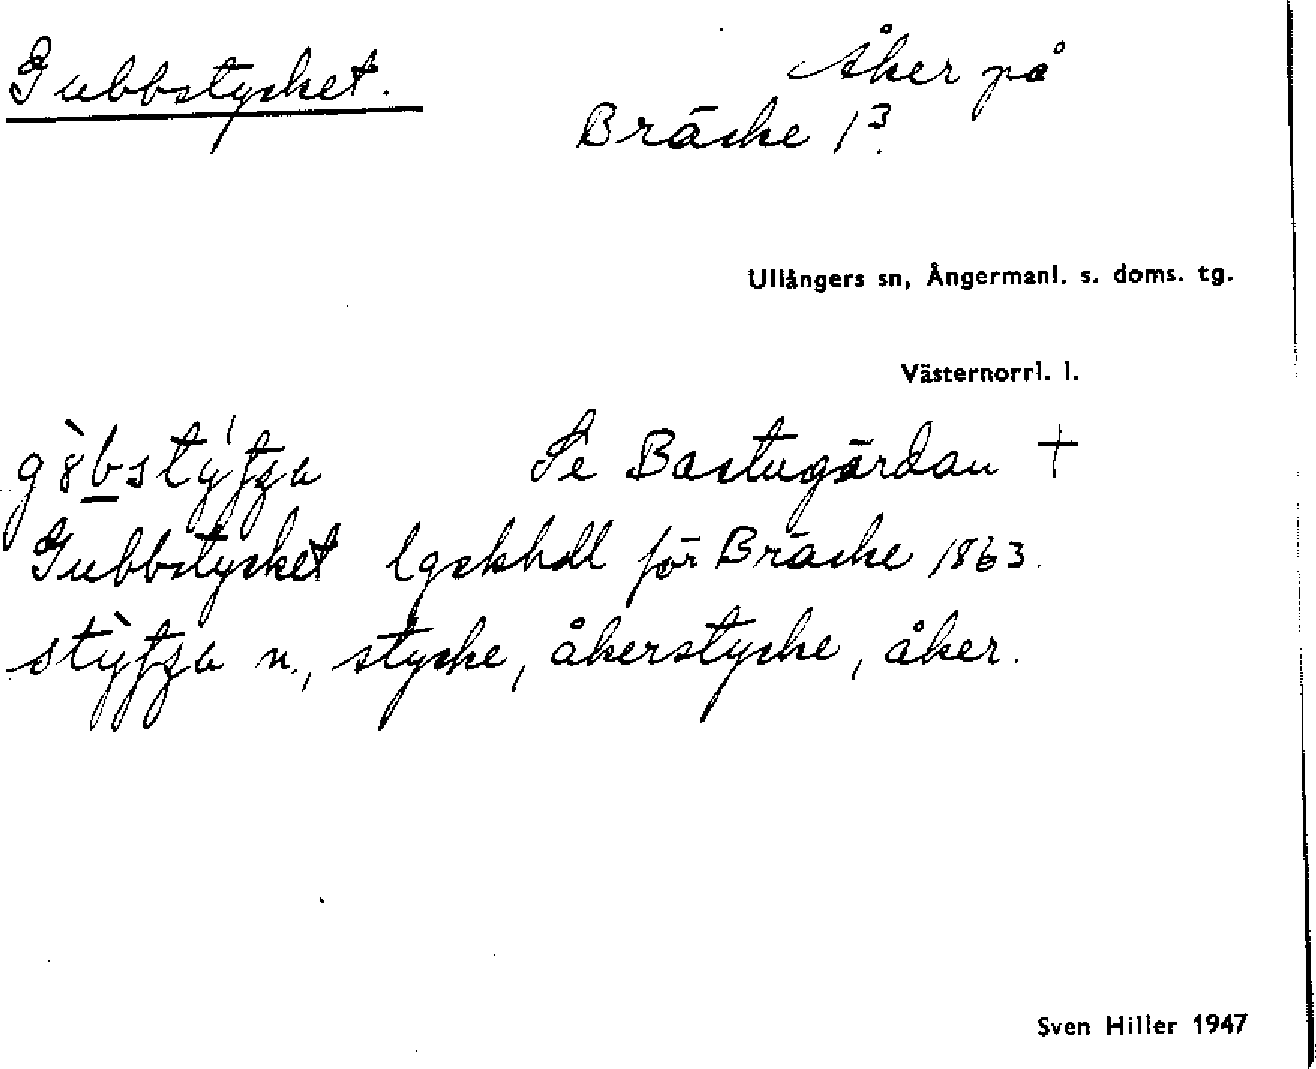 Gubbstycket.
Åker på
Bräcke 1³.
Ullångers sn, Ångermanl. s. doms. tg.
Västernorrl. l.
Se Bastugärdan +
Gubbstycket lgskhdl för Bräcke 1863.
n., stycke, åkerstycke, åker.
Sven Hiller 1947